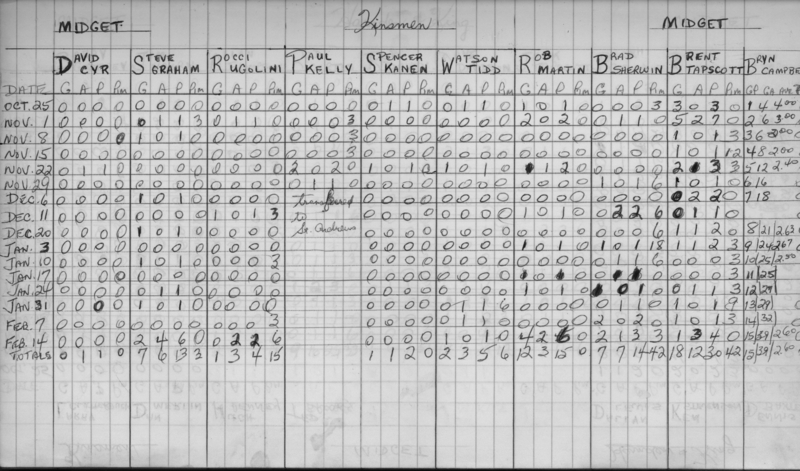 MIDGET Kinsmen MIDGET
DAVID CYR STEVE GRAHAM ROCCI UGOLINI PAUL KELLY SPENCER KANEN WATSON TIDD ROB MARTIN BRAD SHERWIN BRENT TAPSCOTT BRYN CAMPBE
DATE G A P Pim G A P Pim G A P Pim G A P Pim G A P Pim G A P Pim G A P Pim G A P Pim G A P Pim GP GA AVE
OCT. 25 0 0 0 0 0 0 0 0 0 0 0 0 0 0 0 0 0 1 1 0 0 1 1 0 1 0 1 0 0 0 0 3 3 0 3 0 1 4 4.00
NOV. 1 0 0 0 0 0 1 1 3 0 1 1 0 0 0 0 3 0 0 0 0 0 0 0 0 2 0 2 0 0 1 1 0 5 2 7 0 2 6 3.00
NOV. 8 0 0 0 0 1 0 1 0 0 0 0 0 0 0 0 3 0 0 0 0 0 0 0 0 0 0 0 0 0 0 0 0 1 0 1 3 3 6
NOV. 15 0 0 0 0 0 0 0 0 0 0 0 0 0 0 0 3 0 0 0 0 0 0 0 0 0 0 0 0 0 0 0 0 1 0 1 12 4 8 2.00
NOV. 22 0 1 1 0 0 0 0 0 0 0 0 0 2 0 2 0 1 0 1 0 1 0 1 0 1 2 0 0 0 0 0 3 3 5 12 2.40
NOV. 29 0 0 0 0 0 0 0 0 0 0 0 0 0 1 1 0 0 0 0 0 0 0 0 0 0 0 0 0 1 0 1 6 1 0 1 0 6 16
DEC. 6 0 0 0 0 1 0 1 0 0 0 0 0 transferred 0 0 0 0 0 0 0 0 0 0 0 0 0 0 0 0 0 2 2 0 7 18
DEC. 11 0 0 0 0 0 0 0 0 1 0 1 3 to 0 0 0 0 0 0 0 0 1 0 1 0 0 2 2 6 0 1 1 0
DEC. 20 0 0 0 0 1 0 1 0 0 0 0 0 St. Andrews 0 0 0 0 0 0 0 0 0 0 0 0 0 0 0 6 1 1 2 0 8 21 2.63
JAN. 3 0 0 0 0 0 0 0 0 0 0 0 0 0 0 0 0 0 0 0 0 1 0 1 0 1 0 1 18 1 1 2 3 9 24 2.67
JAN. 10 0 0 0 0 1 0 1 0 0 0 0 3 0 0 0 0 0 0 0 0 0 0 0 0 0 1 1 6 0 0 0 3 10 25 2.50
JAN. 17 0 0 0 0 0 0 0 0 0 0 0 0 0 0 0 0 0 0 0 0 0 0 0 0 0 0 0 3 11 25
JAN. 24 0 0 0 0 0 1 1 0 0 0 0 0 0 0 0 0 0 0 0 0 1 0 1 0 0 1 0 0 1 1 3 12 29
JAN 31 0 0 0 0 1 0 1 0 0 0 0 0 0 0 0 0 0 1 1 6 0 0 0 0 0 1 1 0 1 0 1 9 13 29
FEB. 7 0 0 0 0 0 0 0 0 0 0 0 3 0 0 0 0 0 1 1 0 0 0 0 0 2 0 2 0 1 0 1 3 14 32
FEB. 14 0 0 0 0 2 4 6 0 0 2 2 6 0 0 0 0 1 0 1 0 4 2 6 0 2 1 3 3 1 3 4 0 15 39 2.60
TOTALS 0 1 1 0 7 6 13 3 1 3 4 15 1 1 2 0 2 3 5 6 12 3 15 0 7 7 14 42 18 12 30 42 15 39 2.60